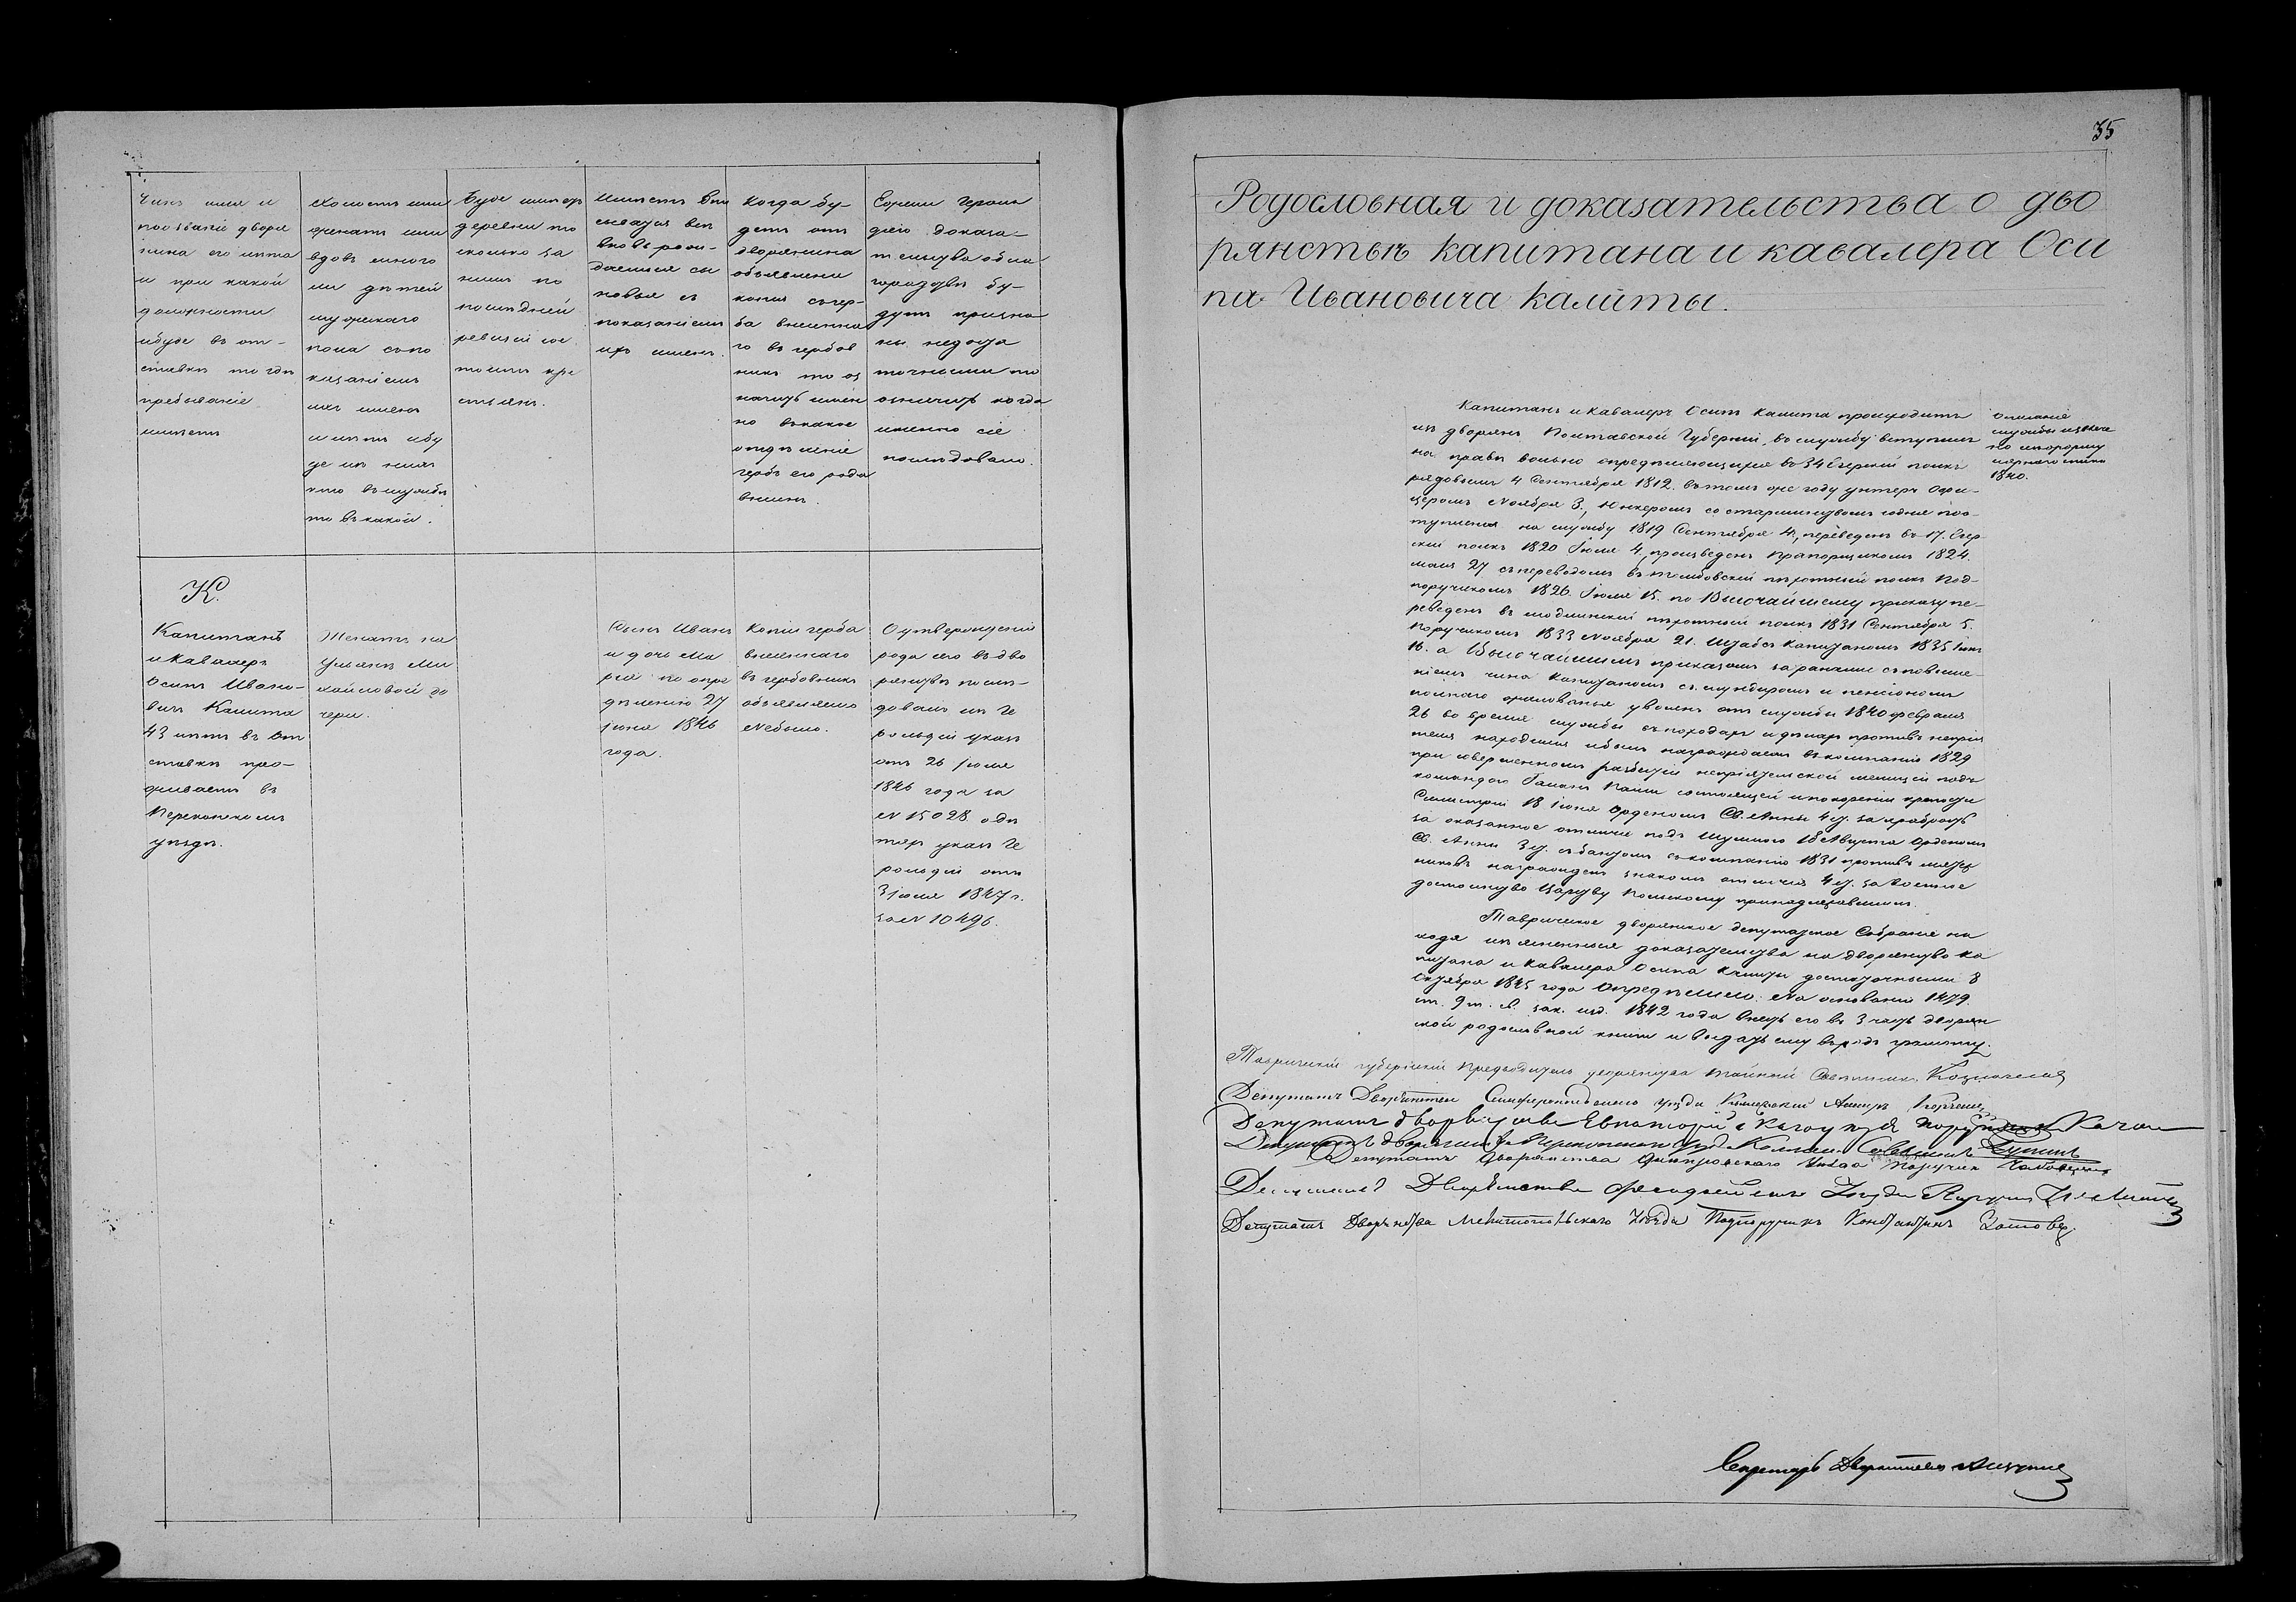 Чинъ имя и
прозваніе дворя
нина его лѣта
и при какой
должности
ибуде въ от-
ставкѣ то гдѣ
пребываніе
имѣетъ
Холостъ или
женатъ или
вдовъ много
ли дѣтей
мужескаго
пола съпо
казаніемъ
ихъ именъ
и лѣтъ ибу
де изъ нихъ
кто въслужбѣ
то въкакой.
Буде имѣетъ
деревни то
сколько за
нимъ по
послѣдней
ревизіи сос
тоитъ кре
стьянъ.
Имѣетъ впи
сываться вся
вновь рож-
даемыя сы
новья съ
показаніемъ
ихъ именъ.
Когда бу-
детъ отъ
дворянина
объявлена
копія съгер-
ба внесенна
го въ гербов
никъ то оз
начить имен
но въкакое
отдѣленіе
гербъ его рода
внесенъ.
Ежели Героль
діею доказа-
тельства о бла
городствѣ бу-
дутъ призна
ны недоста
точными то
отмѣтить когда
именно сіе
послѣдовало.
К.
Капитанъ
и Кавалеръ
Осипъ Ивано-
вичъ Калита
43 лѣтъ въ от
ставкѣ про-
живаетъ въ
Перекопскомъ
уѣздѣ.
Женатъ на
Ульянѣ Ми
хайловой до
чери.
Сынъ Иванъ
и дочь Ма
рія по опре
дѣленію 27
іюня 1846
года.
Копіи герба
внесеннаго
въ гербовникъ
объявляемо
Небыло.
О утвержденіи
рода его въдво
рянствѣ послѣ-
довалъ изъ Ге
рольдіи указъ
отъ 26 іюля
1846 года за
№ 15028. одѣ
тяхъ указъ Ге
рольдіи отъ
3 іюля 1847 г.
за № 10496.
35
Родословная и доказательства о дво
рянствѣ капитана и кавалера Оси
па Ивановича Калиты.
Описаніе
службы извлече
но изформу
лярнаго списка
1840.
Капитанъ и Кавалеръ Осипъ Калита происходитъ
изъ дворянъ Полтавской Губерніи, въ службу вступилъ
на правѣ вольно опредѣляющихся въ 34 Егерскій полкъ
рядовымъ 4 Сентября 1812. въ томъ же году унтеръ Офи-
церомъ Ноября 3., Юнкеромъ со старшинствомъ содня пос-
тупленія на службу 1819 Сентября 4., переведенъ въ 17. Егер
скій полкъ 1820 Іюля 4, произведенъ Прапорщикомъ 1824.
мая 27 съпереводомъ въ Тамбовскій пѣхотный полкъ Под-
поручикомъ 1826. Іюля 15. по Высочайшему приказу пе-
реведенъ въ модлинскій пѣхотный полкъ 1831 Сентября 5.
Поручикомъ 1833 Ноября 21. Штабсъ Капитаномъ 1835
16. а Высочайшимъ приказомъ за ранами съповыше-
ніемъ чина Капитаномъ съ мундиромъ и пенсіономъ
полнаго жалованья уволенъ отъ службы 1840 февраля
26 во время службы въпоходахъ и дѣлахъ противъ непрія
теля находился ибылъ награжденъ въкомпанію 1829
при совершенномъ разбитіи непріятельской милиціи подъ
командою Паши состоящей ипокореніи крѣпости
Силистріи 18 іюня Орденомъ Св. Анны 4 ст. за храбрость
за оказанное отличіе подъ Шумлою Августа Орденомъ
Св. Анны 3 ст. събантомъ въкомпанію 1831 противъ мятеж
никовъ награжденъ знакомъ отличія 4 ст. за военное
достоинство Царству Польскому принадлежавшимъ.
Таврическое дворянское депутатское Собраніе на
ходя изъясненныя доказательства на дворянство Ка
питана и Кавалера Осипа Калиты достаточными 8
Октября 1845 года Опредѣлило: На основаніи 1479.
ст. 9 т. св. зак. изд. 1842 года внесть его въ 3 часть дворян
ской родословной книги и выдать ему въродъ грамоту.
Таврическій губернскій Предводитель дворянства Тайный Совѣтникъ Казначеевъ
Депутатъ Дворянства Симферопольскаго уѣзда
Депутатъ дворянства Евпаторійскаго уѣзда
Депутатъ дворянства Перекопскаго
Депутатъ Дворянства Днѣпровскаго Уѣзда Поручикъ
Депутатъ Дворянства Феодосійскаго Уѣзда
Депутатъ Дворянства Мелитопольскаго Уѣзда Подпоручикъ Константинъ Зотовъ.
Секретарь Дворянства